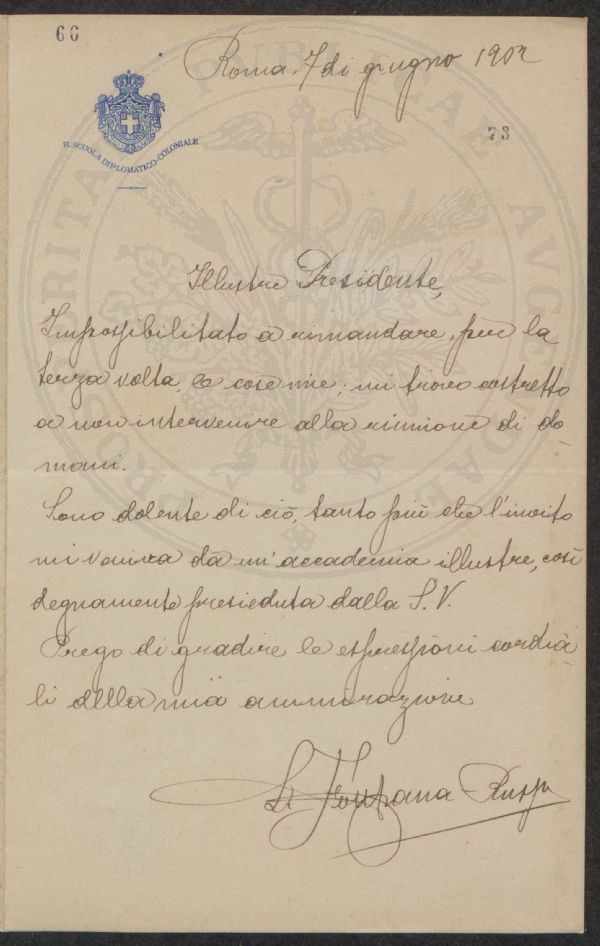 66
Roma, 7 di giugno 1902
R. SCUOLA DIPLOMATICO-COLONIALE
73
Illustre Presidente,
Impossibilitato a rimandare, per la
terza volta, le cose mie, mi trovo costretto
a non intervenire alla riunione di do-
mani.
Sono dolente di ciò, tanto più che l'invito
mi veniva da un'accademia illustre, così
degnamente presieduta dalla S.V.
Prego di gradire le espressioni cordia-
li della mia ammirazione
Fontana